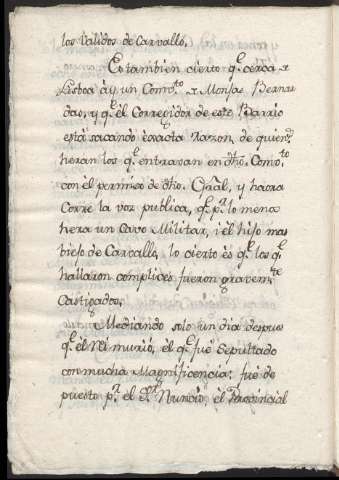 los Validos de Carvallo,
Es tambien cierto q.e cerca
Lisboa ay un Comv.to Monjas Bernar
das, y q.e el Corregidor de este Barrio
está sacando exacta razon, de quien.s
heran los q.e entravan en dho. Comv.to
con el permiso de dho. Gral, y haora
corre la voz publica, q.e p.r lo menos
hera un Cavo Militar, i el hijo mas
biejo de Carvallo, lo cierto és q.e los q.e
hallaron complices fueron gravem.te
Castigados,
Mediando solo un dia despues
q.e el Rei murió, el q.e fué sepultado
con mucha Magnificencia; fué de
puesto p.r el S.r Nuncio, el Provincial